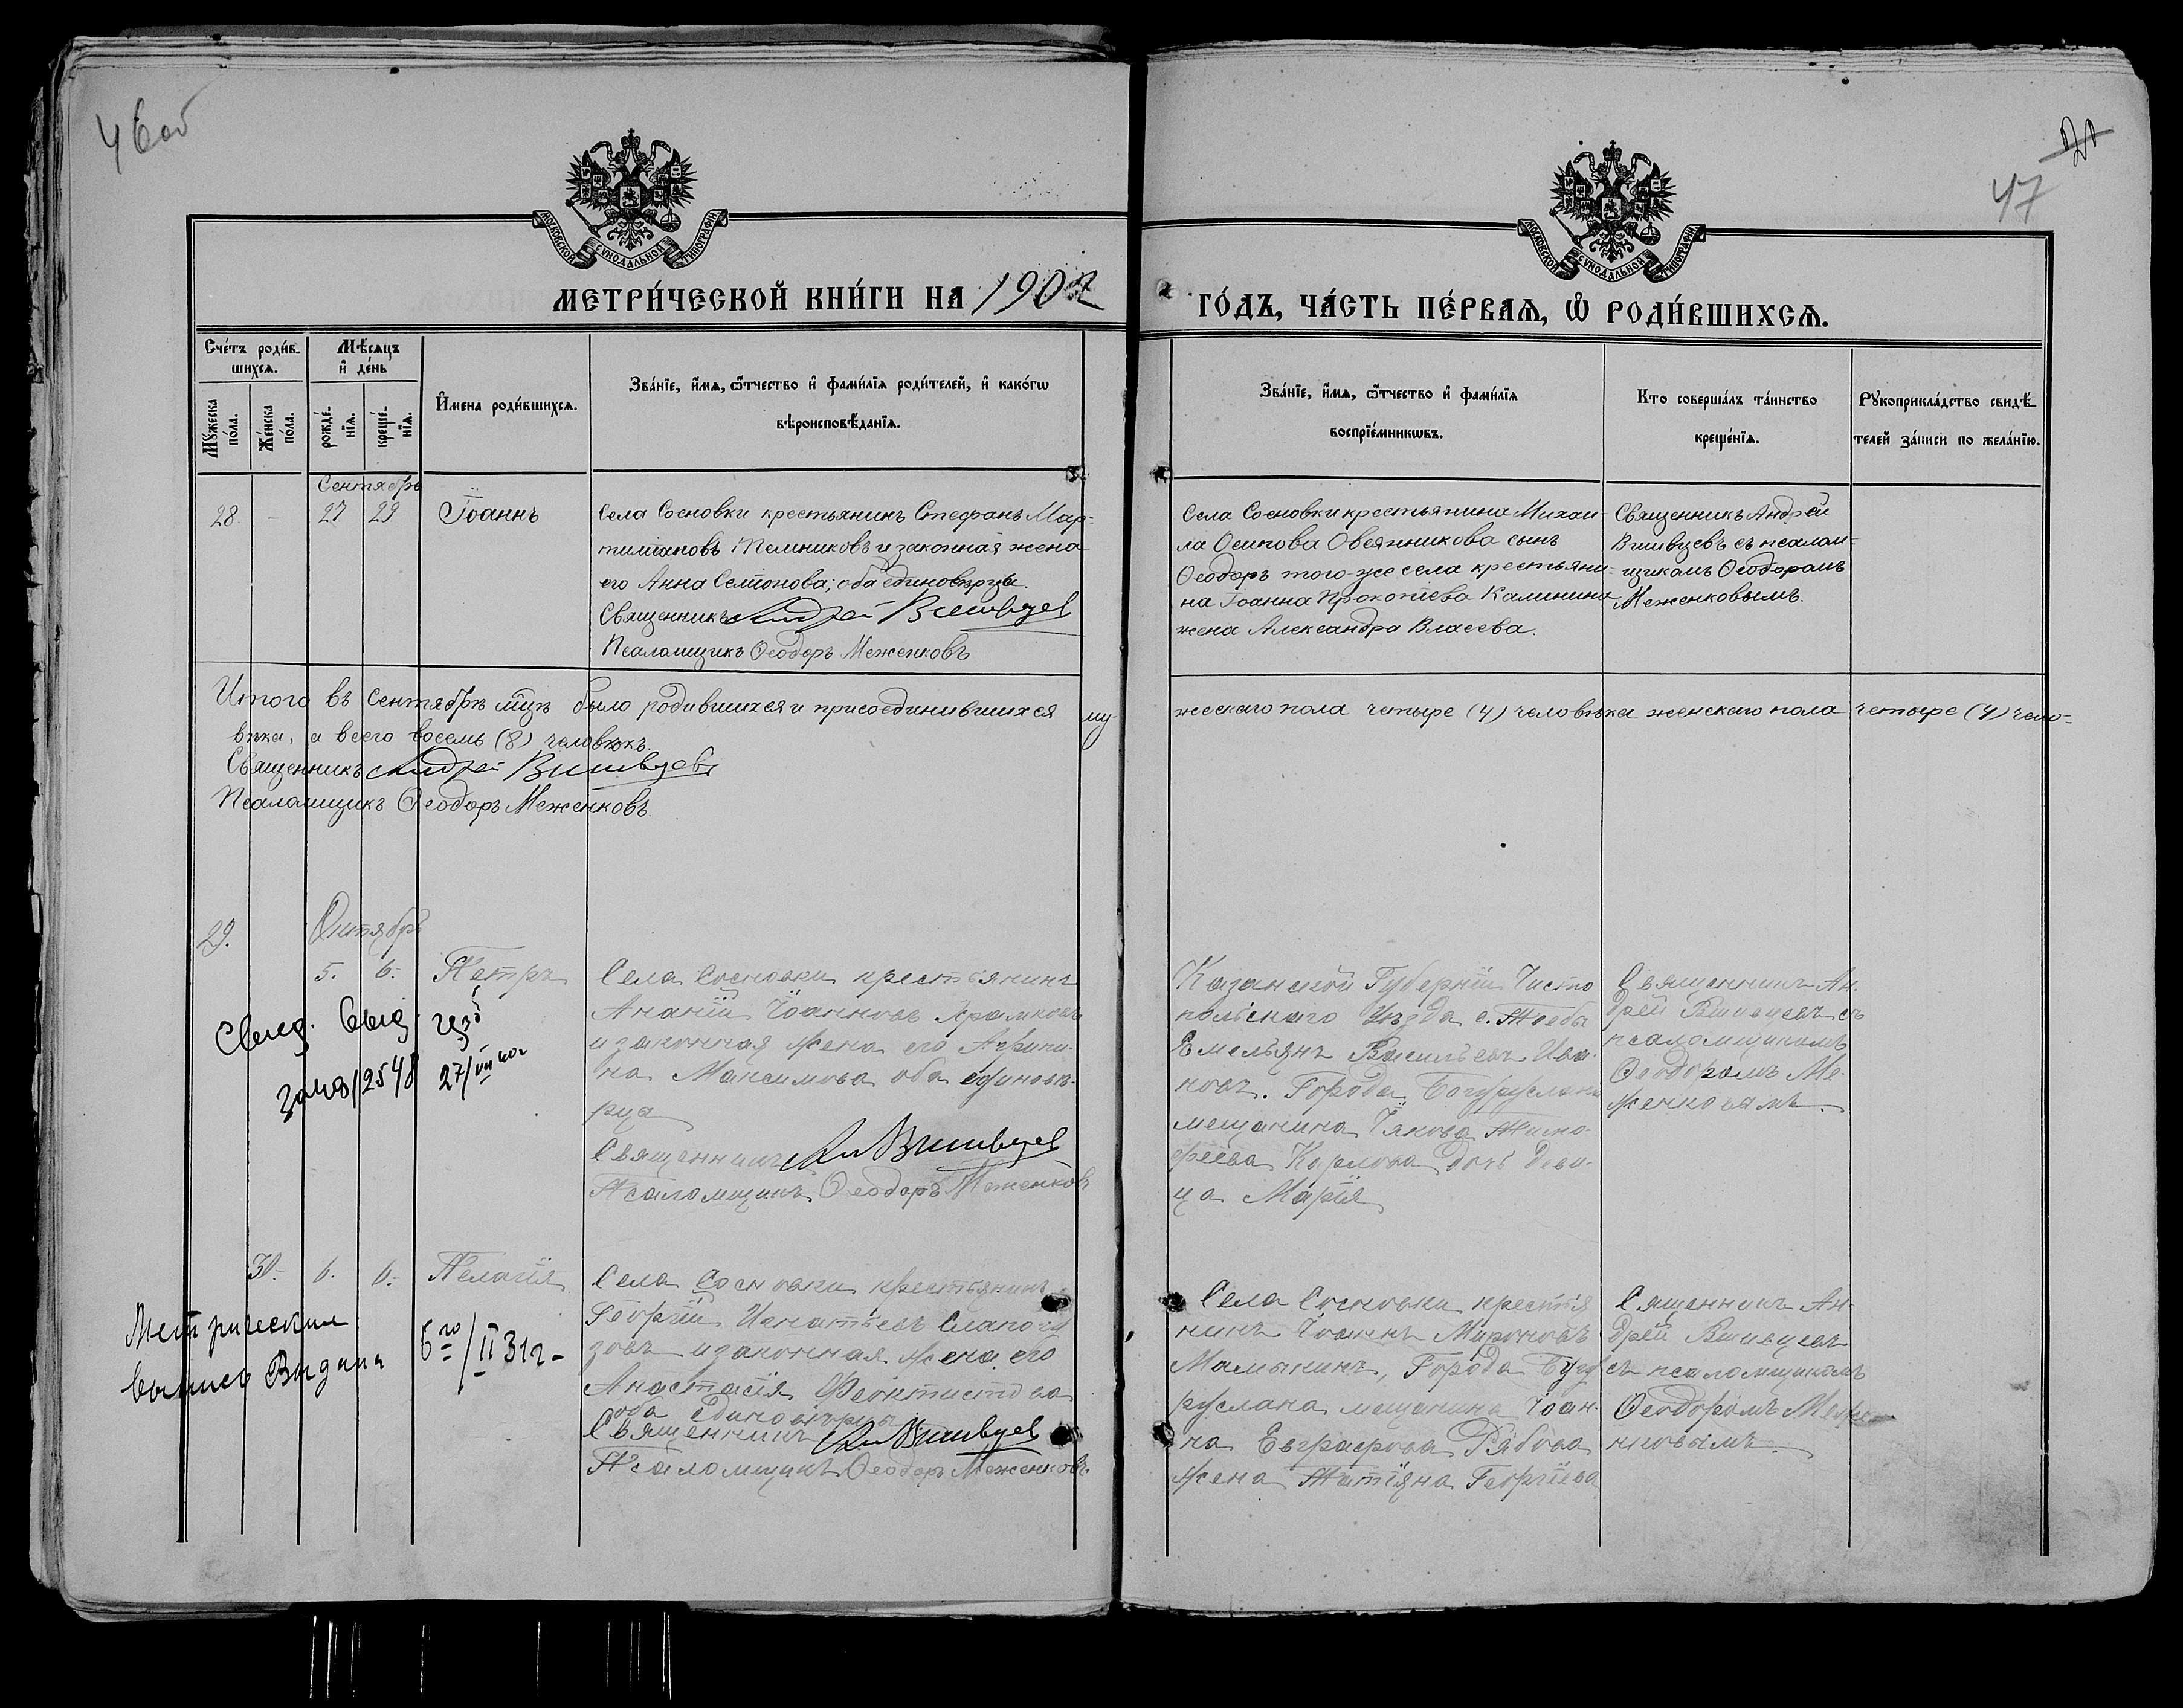 46об
47
МОСКОВСКОЙ СУНОДАЛЬНОЙ ТИПОГРАФІИ
МОСКОВСКОЙ СУНОДАЛЬНОЙ ТИПОГРАФІИ
МЕТРИ́ЧЕСКОЙ КНИ́ГИ НА 1902
ГО́ДЪ, ЧА́СТЬ ПЕ́РВАѦ, Ѽ РОДИ́ВШИХСѦ.
Сче́тъ роди́в-
шихсѧ.
Мꙋжеска по́ла.
Же́нска по́ла.
Мѣ́сѧцъ
и҆ де́нь
рожде́-
нїѧ.
креще́-
нїѧ.
И҆мена роди́вшихсѧ.
Зва́нїе, и҆́мѧ, ѻ҆́тчество и҆ фами́лїѧ роди́телей, и҆ како́гѡ
вѣроисповѣ́данїѧ.
Зва́нїе, и҆́мѧ, ѻ҆́тчество и҆ фами́лїѧ
воспрїе́мникѡвъ.
Кто соверша́лъ та́инство
креще́нїѧ.
Рꙋкоприкла́дство свидѣ́-
телей за́писи по жела́нїю.
Сентябрь
28. - 27 29 Іоаннъ
Села Сосновки крестьянинъ Стефанъ Мар-
и законная жена
его Анна Семенова; оба единоверцы.
Священникъ Андрей Вшивцев
Псаломщикъ Ѳеодоръ Меженковъ
Села Сосновки крестьянина Михаи-
ла Осипова Овсянникова сынъ
Ѳеодоръ того-же села крестьяни-
на Іоанна Прокопіева Калинина
жена Александра Власева.
Священникъ Андрей
Вшивцевъ съ псалом-
щикомъ Ѳеодоромъ
Меженковымъ.
Итого въ Сентябрѣ мцѣ было родившихся и присоединившихся му-
жескаго пола четыре (4) человѣка женскаго пола четыре (4) чело-
вѣка, а всего восемь (8) человѣкъ.
Священникъ Андрей Вшивцевъ
Псаломщикъ Ѳеодоръ Меженковъ.
Октябрь
29.
5. 6. Петръ
Села Сосновки крестьянинъ
Ананій Іоанновъ Храмковъ
и законная жена его Агрипи-
на Максимова оба единовѣ-
рца
Священникъ Ан Вшивцев
Псаломщикъ Ѳеодоръ Меженковъ
Казанской Губерніи Чисто
польскаго Уѣзда с.
Емельянъ Васильевъ Ива-
новъ. Города Бугуруслана
мещанина Іякова Тимо-
феева Карлова дочь дѣви-
ца Марія
Священникъ Ан-
дрей Вшивцевъ съ
псаломщикомъ
Ѳеодоромъ Ме-
женковымъ.
Свид. выд.
2548
27/VII
30. 6. 6. Пелагія
Села Сосновки крестьянинъ
Георгій Игнатьевъ
зовъ и законная жена его
Анастасія Феоктистова
оба единовѣрцы
Священникъ Ан Вшивцев
Псаломщикъ Ѳеодоръ Меженковъ.
Села Сосновки крестья
нинъ Іоаннъ Мироновъ
Малыкинъ, Города Бугу
руслана мещанина Іоан-
на Евграфова Рябова
жена Татіяна Георгіева
Священникъ Ан-
дрей Вшивцевъ
съ псаломщикомъ
Ѳеодоромъ Меже-
нковымъ.
Метрическая
выпись Выдана
6го/II 31г-